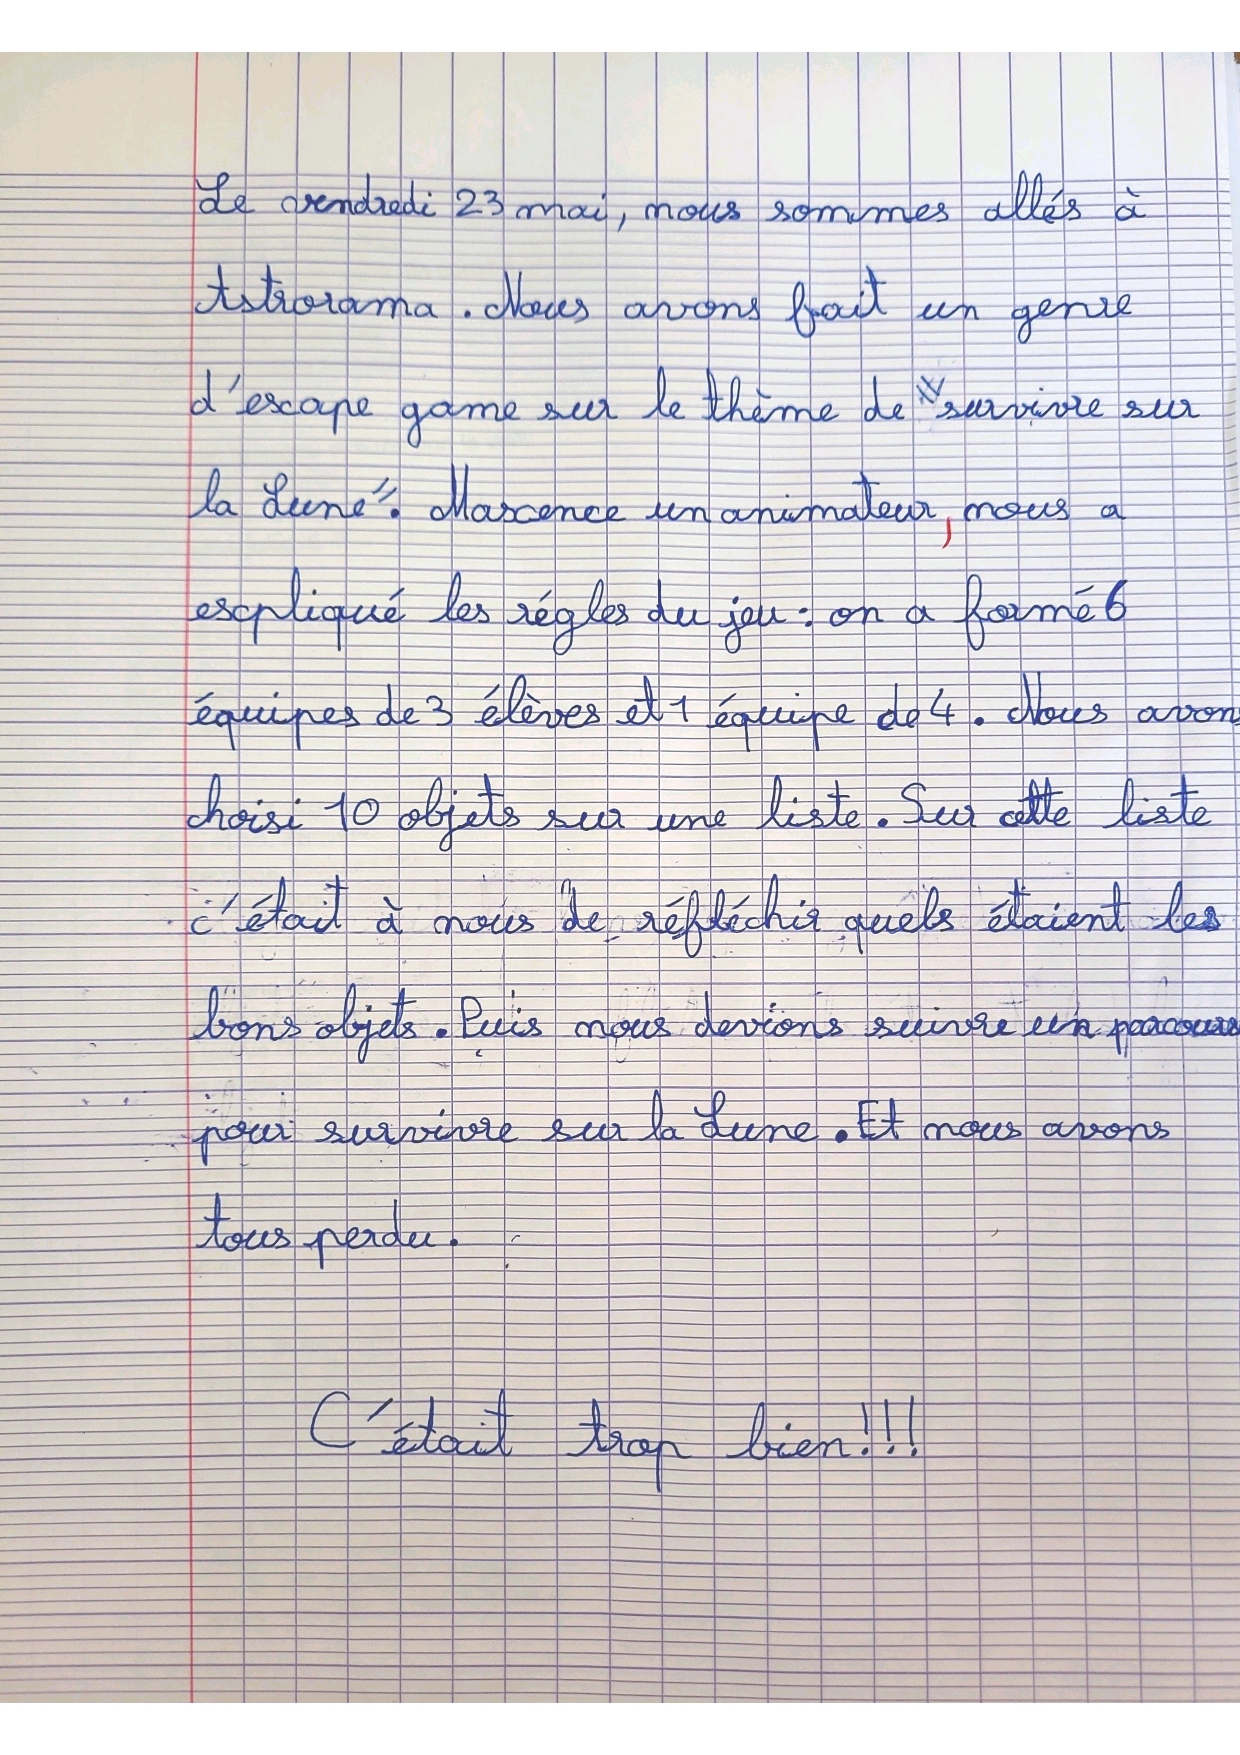 Le vendredi 23 mai, nous sommes allés à
Astrorama. Nous avons fait un genre
d'escape game sur le thème de "survivre sur
la Lune". Maxence un animateur, nous a
expliqué les régles du jeu : on a formé 6
équipes de 3 élèves et 1 équipe de 4. Nous avon
choisi 10 objets sur une liste. Sur cette liste
c'était à nous de réfléchir quels étaient les
bons objets. Puis nous devions suivre un parcours
pour survivre sur la Lune. Et nous avons
tous perdu.
C'était trop bien!!!